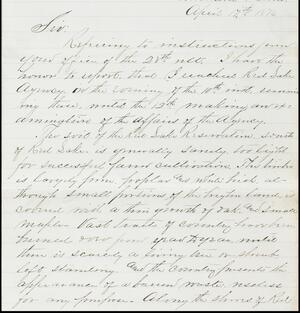 April 17th 1876
Sir:
Referring to instructions from
your office of the 28th ult. I have the
honor to report, that I reached Red Lake
Agency on the evening of the 10th inst, remain
ing there until the 13th making an ex-
amination of the affairs of the Agency.
The soil of the Red Lake Reservation, south
of Red Lake is generally sandy, too light
for successful farm cultivation. The timber
is largely pine, poplar and white birch, al-
though small portions of the higher land is
covered with a thin growth of oak and small
maple. Vast tracts of country have been
burned over from year to year until
there is scarcely a living tree or shrub
left standing and the country presents the
appearance of a barren waste, useless
for any purpose. Along the shores of Red